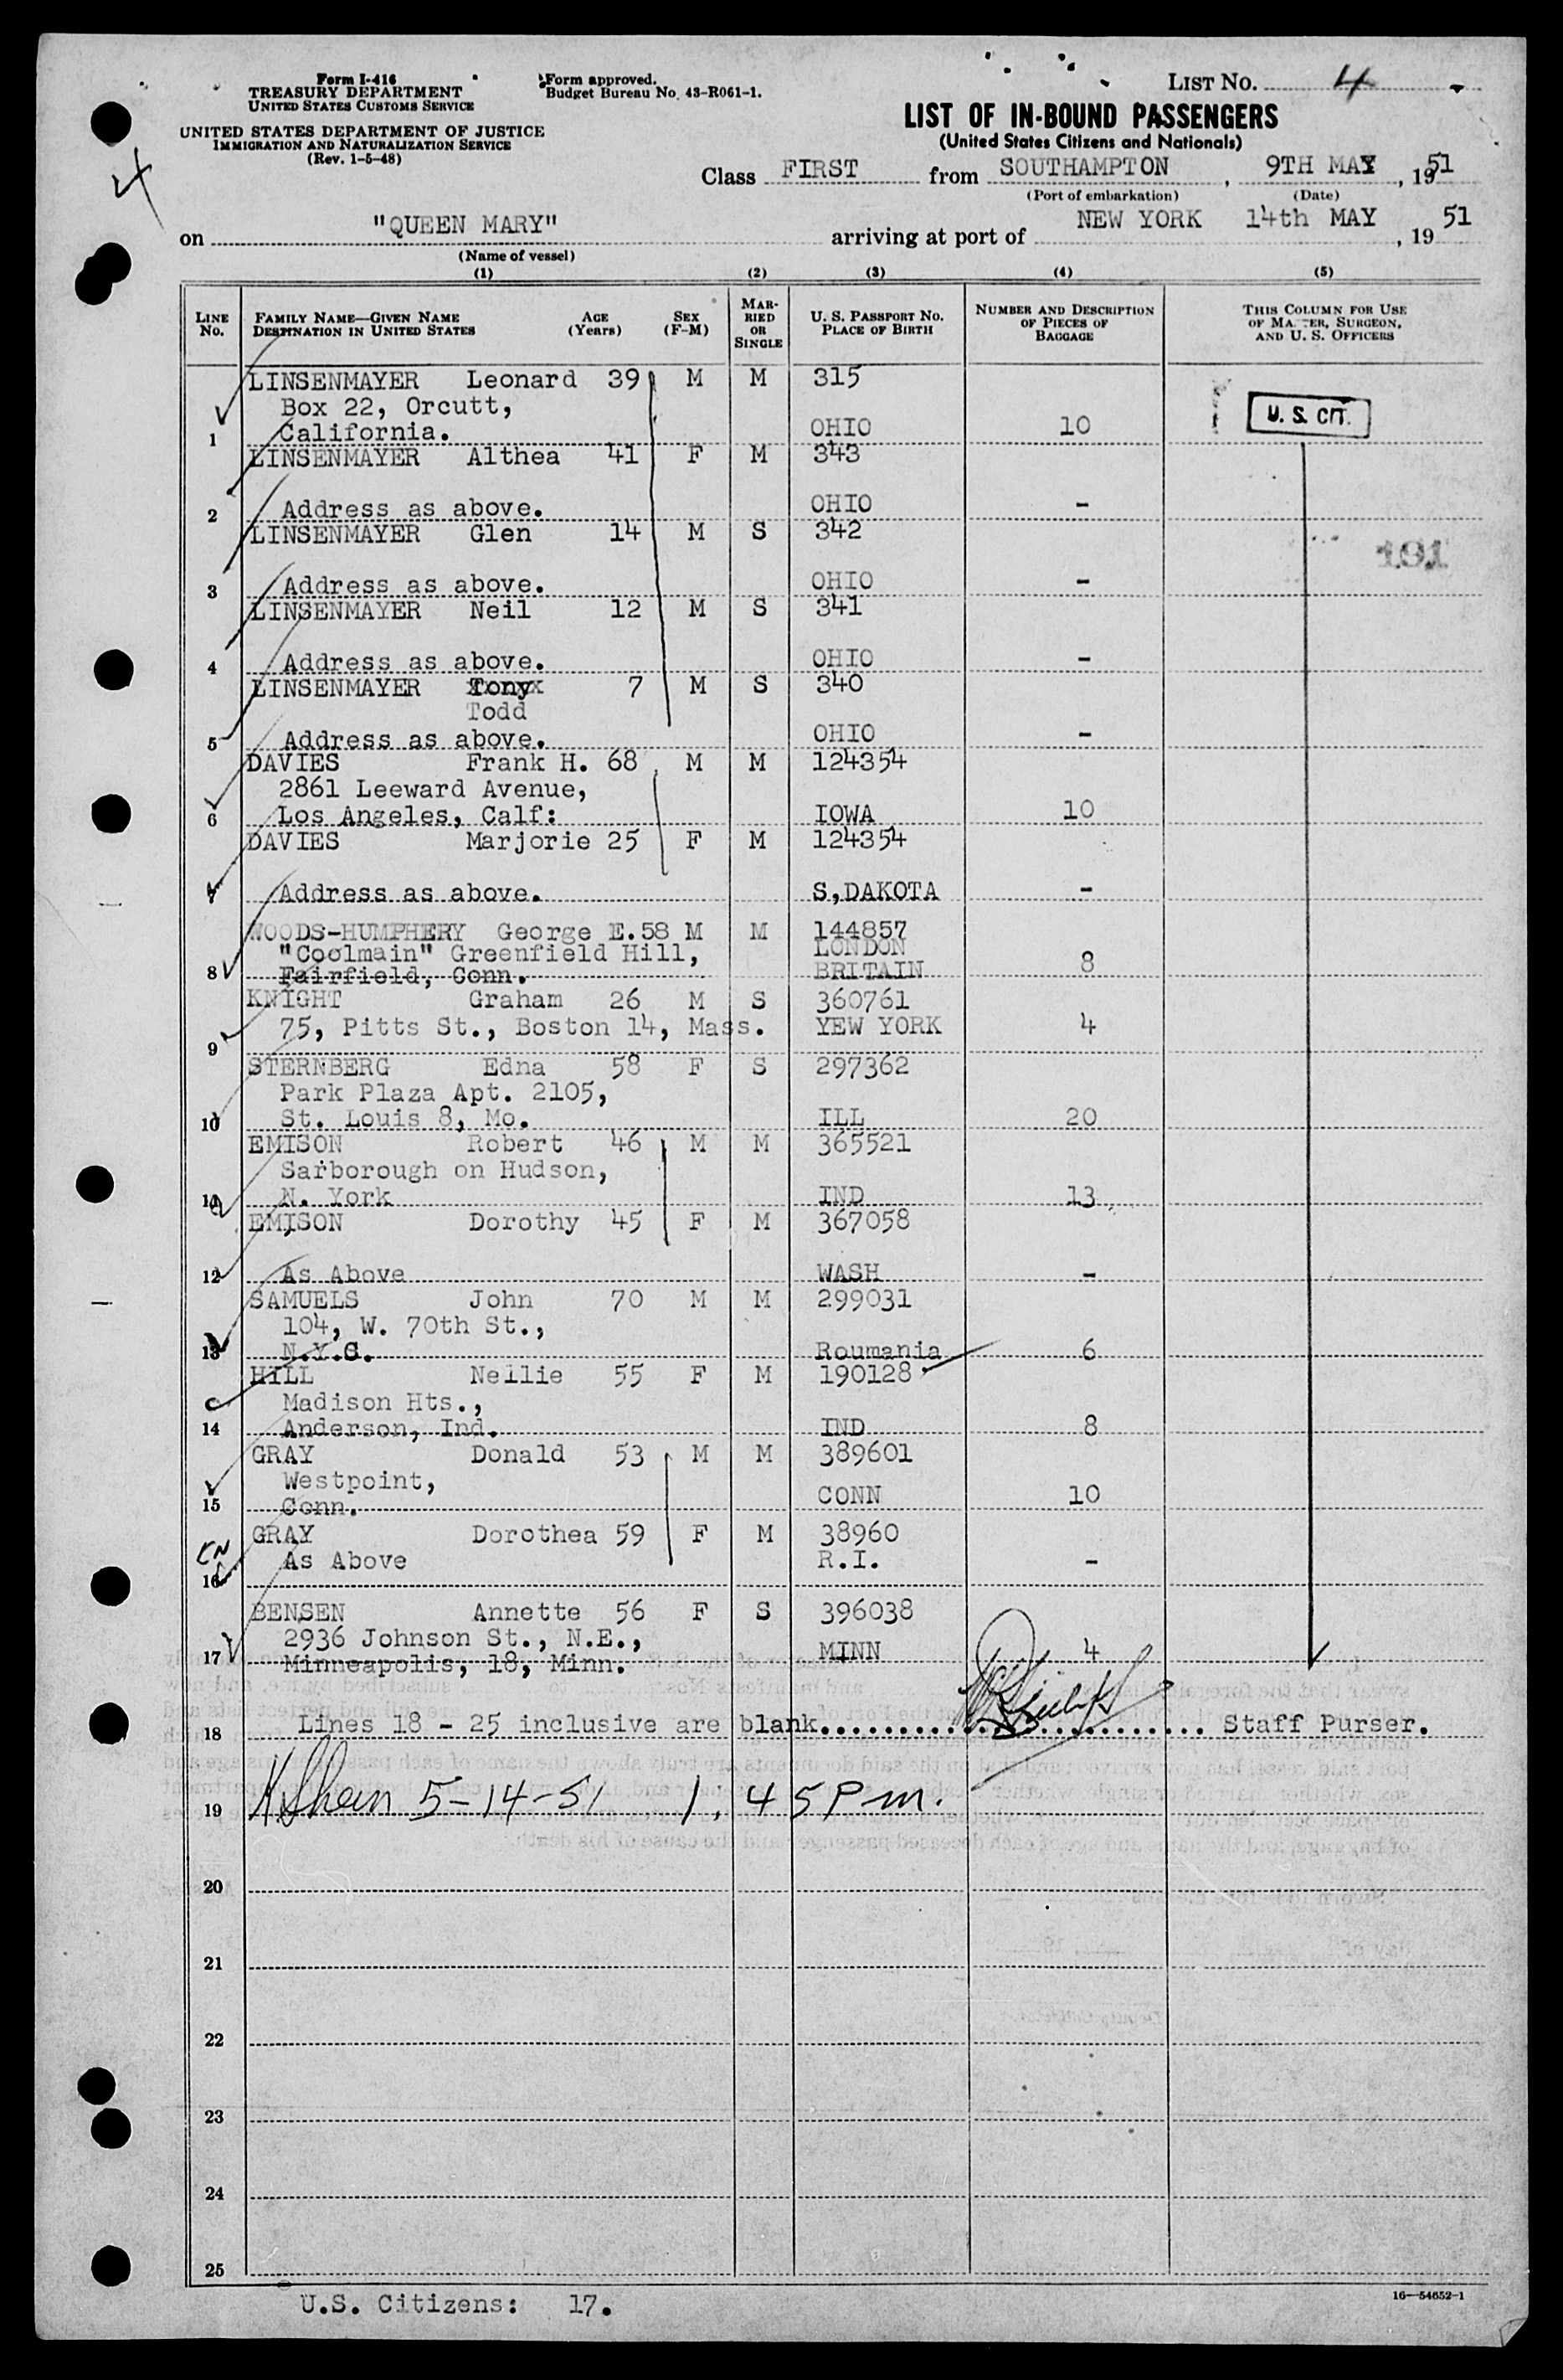 Form I-416
TREASURY DEPARTMENT
UNITED STATES CUSTOMS SERVICE
UNITED STATES DEPARTMENT OF JUSTICE
IMMIGRATION AND NATURALIZATION SERVICE
(Rev. 1-5-48)
4
Form approved.
Budget Bureau No. 43-R061-1.
LIST No. 4
LIST OF IN-BOUND PASSENGERS
(United States Citizens and Nationals)
Class FIRST from SOUTHAMPTON, 9TH MAY, 1951
(Port of embarkation) (Date)
on "QUEEN MARY" arriving at port of NEW YORK 14th MAY, 19 51
(Name of vessel)
(1) (2) (3) (4) (5)
LINE No. FAMILY NAME—GIVEN NAME DESTINATION IN UNITED STATES AGE (Years) SEX (F-M) MARRIED OR SINGLE U. S. PASSPORT NO. PLACE OF BIRTH NUMBER AND DESCRIPTION OF PIECES OF BAGGAGE THIS COLUMN FOR USE OF MASTER, SURGEON, AND U. S. OFFICERS
LINSENMAYER Leonard 39 M M 315
Box 22, Orcutt,
1 California. OHIO 10 U. S. CIT.
LINSENMAYER Althea 41 F M 343
2 Address as above. OHIO -
LINSENMAYER Glen 14 M S 342
191
3 Address as above. OHIO -
LINSENMAYER Neil 12 M S 341
4 Address as above. OHIO -
LINSENMAYER Tony 7 M S 340
Todd
5 Address as above. OHIO -
DAVIES Frank H. 68 M M 124354
2861 Leeward Avenue,
6 Los Angeles, Calf: IOWA 10
DAVIES Marjorie 25 F M 124354
7 Address as above. S,DAKOTA -
WOODS-HUMPHERY George E.58 M M 144857
"Coolmain" Greenfield Hill, LONDON
8 Fairfield, Conn. BRITAIN 8
KNIGHT Graham 26 M S 360761
75, Pitts St., Boston 14, Mass. YEW YORK 4
9
STERNBERG Edna 58 F S 297362
Park Plaza Apt. 2105,
10 St. Louis 8, Mo. ILL 20
EMISON Robert 46 M M 365521
Sarborough on Hudson,
11 N. York IND 13
EMISON Dorothy 45 F M 367058
12 As Above WASH -
SAMUELS John 70 M M 299031
104, W. 70th St.,
13 N.Y.C. Roumania 6
HILL Nellie 55 F M 190128
Madison Hts.,
14 Anderson, Ind. IND 8
GRAY Donald 53 M M 389601
Westpoint,
15 Conn. CONN 10
GRAY Dorothea 59 F M 38960
As Above R.I. -
16
BENSEN Annette 56 F S 396038
2936 Johnson St., N.E.,
17 Minneapolis, 18, Minn. MINN 4
18 Lines 18 - 25 inclusive are blank.............................. Staff Purser.
19 5-14-51 1.45 Pm.
20
21
22
23
24
25
U.S. Citizens: 17.
16—54652-1